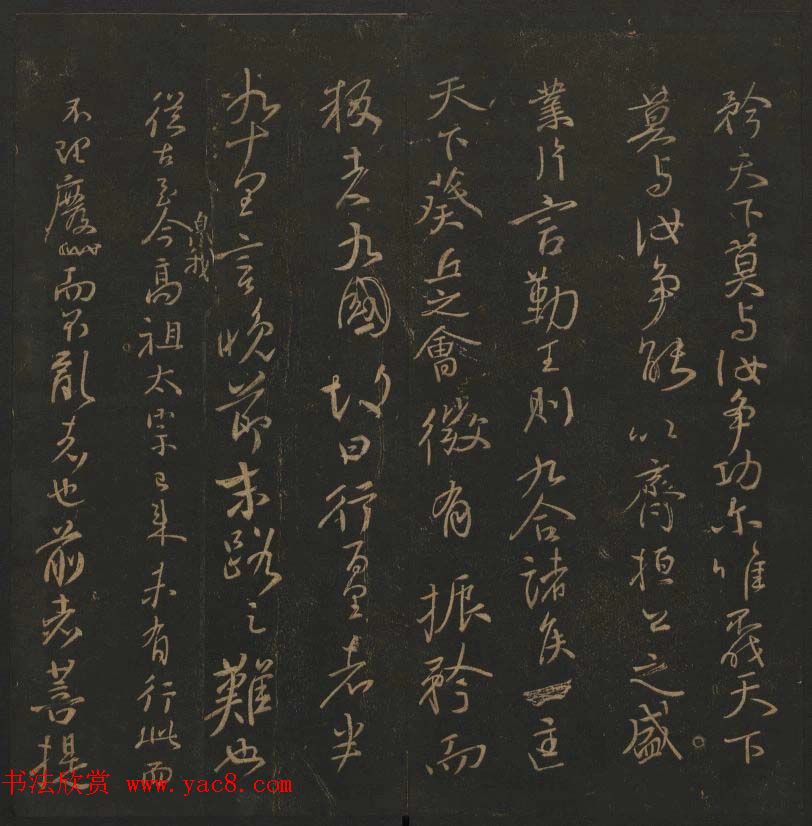 矜天下莫与汝争功尔唯不伐天下
莫与汝争能以齊桓公之盛
業片言勤王則九合諸侯一匡
天下葵丘之會微有振矜而
叛者九國故曰行百里者半
九十里言晚節末路之難也
從古至今自我高祖太宗已来未有行此而
不理廢而不亂者也前者菩提
书法欣赏 www.yac8.com